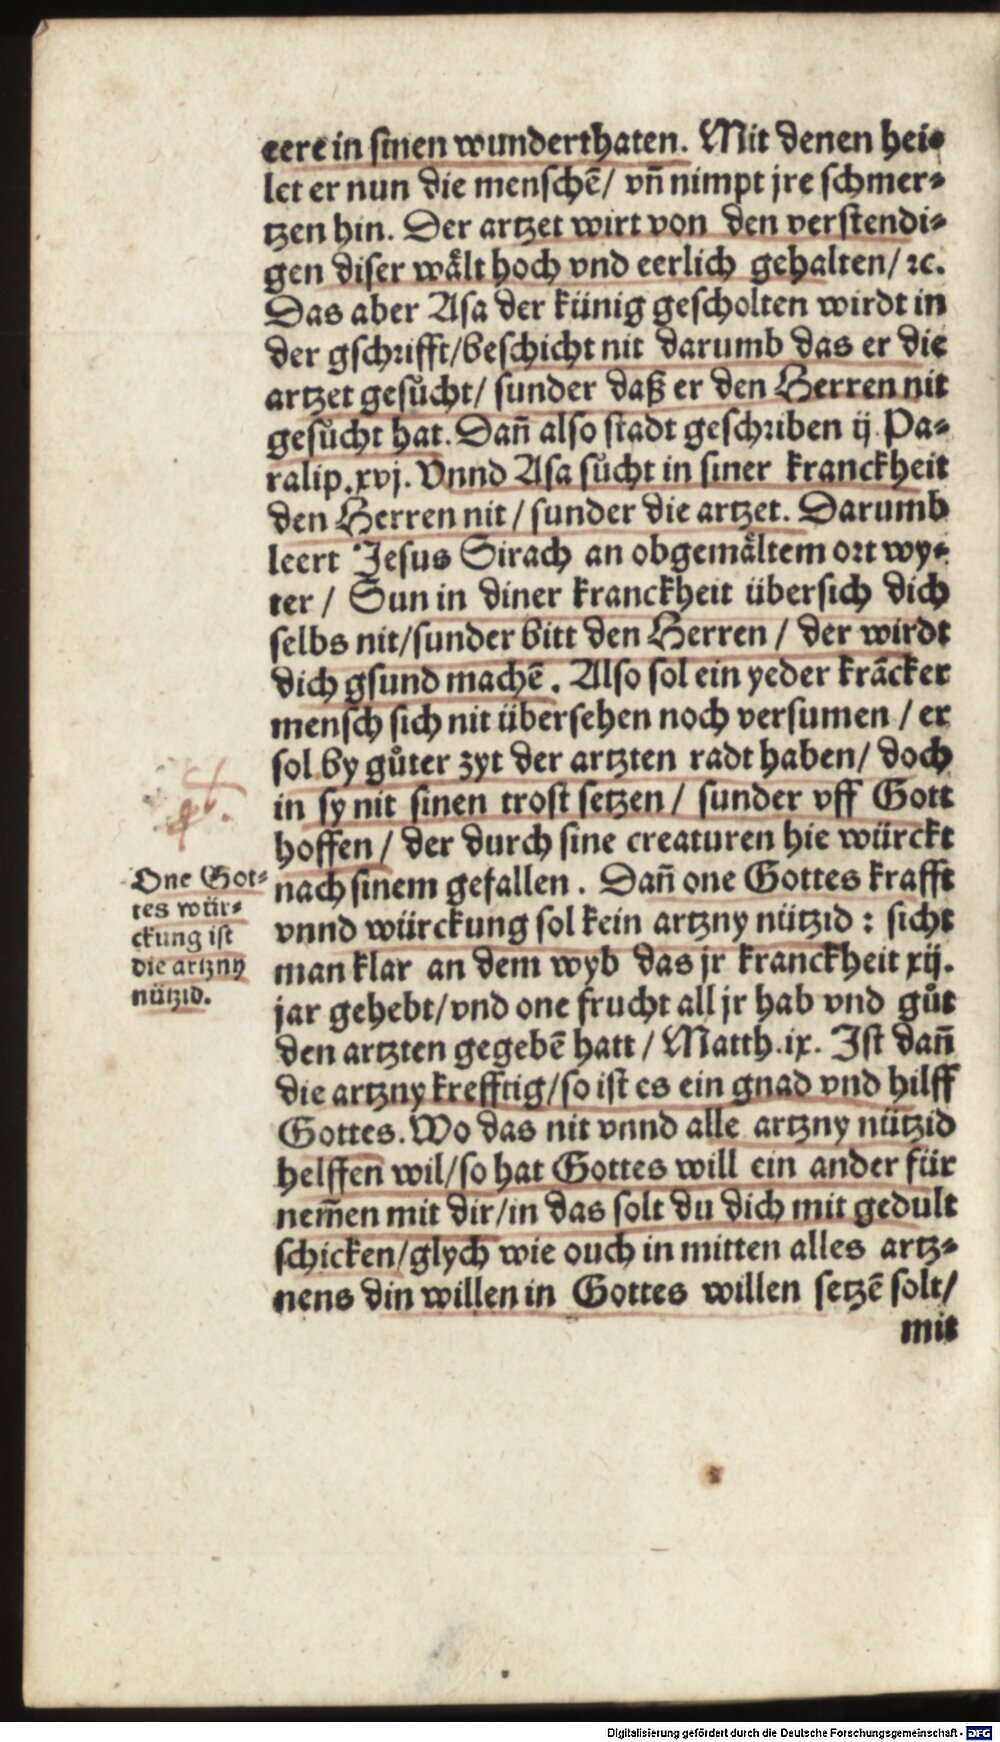 eere in sinen wunderthaten. Mit denen hei⸗
let er nun die menschē/ vñ nimpt jre schmer⸗
tzen hin. Der artzet wirt von den verstendi⸗
gen diser wålt hoch vnd eerlich gehalten/ ꝛc.
Das aber Asa der künig gescholten wirdt in
der gschrifft/beschicht nit darumb das er die
artzet gesůcht/ sunder daß er den Herren nit
gesůcht hat. Dañ also stadt geschriben ij Pa⸗
ralip.xvj. Vnnd Asa sůcht in siner kranckheit
den Herren nit / sunder die artzet. Darumb
leert Jesus Sirach an obgemåltem ort wy⸗
ter / Sun in diner kranckheit übersich dich
selbs nit/sunder bitt den Herren / der wirdt
dich gsund machē. Also sol ein yeder krācker
mensch sich nit übersehen noch versumen / er
sol by gůter zyt der artzten radt haben/ doch
in sy nit sinen trost setzen / sunder vff Gott
hoffen / der durch sine creaturen hie würckt
nach sinem gefallen. Dañ one Gottes krafft
vnnd würckung sol kein artzny nützid : sicht
man klar an dem wyb das jr kranckheit xij.
jar gehebt/vnd one frucht all jr hab vnd gůt
den artzten gegebē hatt / Matth.ix. Ist dañ
die artzny krefftig/so ist es ein gnad vnd hilff
Gottes. Wo das nit vnnd alle artzny nützid
helffen wil/so hat Gottes will ein ander für
nem̄en mit dir/in das solt du dich mit gedult
schicken/glych wie ouch in mitten alles artz⸗
nens din willen in Gottes willen setzē solt/
mit
One Got⸗
tes wür⸗
ckung ist
die artzny
nützid.
Digitalisierung gefördert durch die Deutsche Forschungsgemeinschaft - DFG